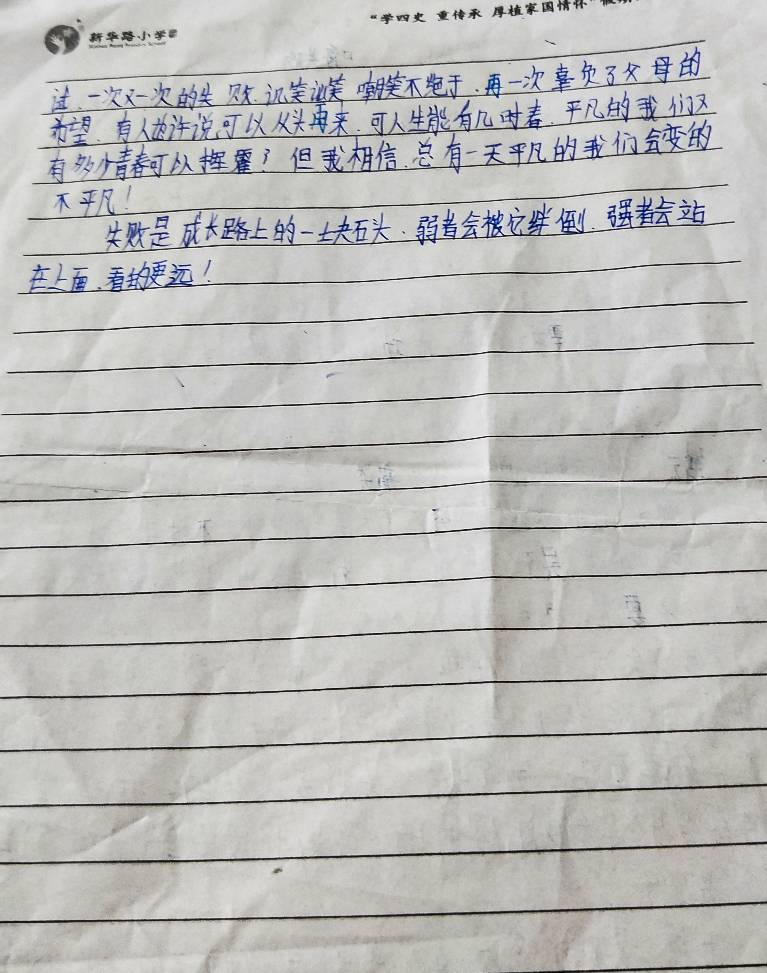 新华路小学
“学四史 重传承 厚植家国情怀”
试.一次又一次的失败.讥笑讪笑 嘲笑不绝于.再一次辜负了父母的
希望.有人或许说可以从头再来.可人生能有几时春.平凡的我们又
有多少青春可以挥霍？但我相信.总有一天平凡的我们会变的
不平凡！
失败是成长路上的一块石头.弱者会被它绊倒.强者会站
在上面.看的更远！